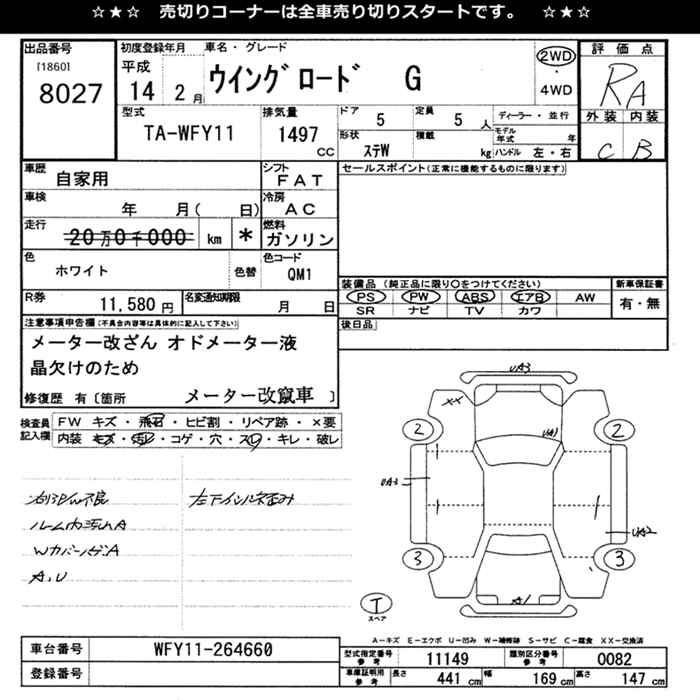 ☆★☆ 売切りコーナーは全車売り切りスタートです。 ☆★☆
出品番号
[1860]
8027
初度登録年月
平成
14 2月
車名・グレード
ウイングロード G
2WD
・
4WD
評価点
RA
外装 内装
C B
型式
TA-WFY11
排気量
1497
CC
ドア 5
定員 5 人
ディーラー・並行
形状 ステW
積載 kg
モデル年式 年
ハンドル 左・右
車歴 自家用
シフト FAT
セールスポイント(正常に機能するものに限ります)
車検 年 月( 日)
冷房 AC
走行 20万0千000 km *
燃料 ガソリン
色 ホワイト 色替
色コード QM1
装備品 (純正品に限り○をつけてください)
新車保証書
PS PW ABS エアB AW
有・無
SR ナビ TV カワ
R券 11,580円
名変通知期限 月 日
後日品
注意事項申告欄(不具合内容等は具体的に記入して下さい)
メーター改ざん オドメーター液
晶欠けのため
修復歴 有〔箇所 メーター改竄車 〕
検査員記入欄
FW キズ・飛石・ヒビ割・リペア跡・×要
内装・キズ・汚レ・コゲ・穴・スレ・キレ・破レ
ルーム内汚れA
A.U
UA3
XX
2
2
UA1
UA3
UA2
3
3
A1
T
スペア
A−キズ E−エクボ U−凹み W−補修跡 S−サビ C−腐食 XX−交換済
車台番号 WFY11-264660
登録番号
型式指定番号参考 11149
類別区分番号参考 0082
車庫証明用参考 長さ 441 cm 幅 169 cm 高さ 147 cm